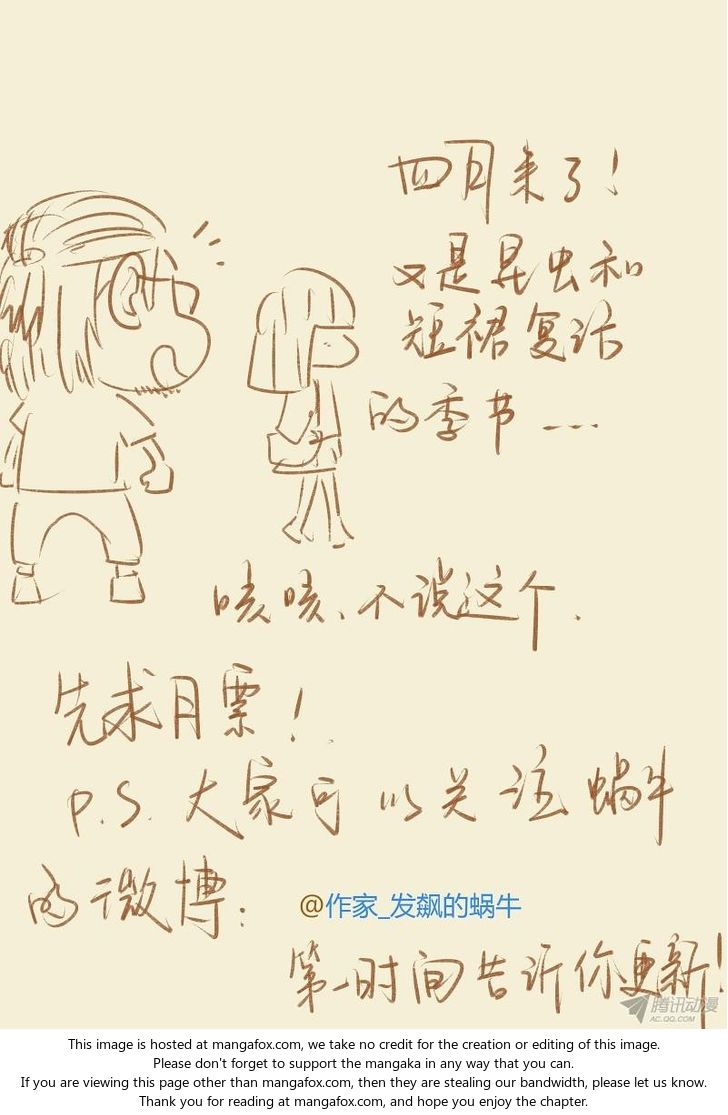 四月来了!
又是昆虫和
短裙复活
的季节...
咳咳、不说这个.
先求月票!
P.S.大家可以关注蜗牛
的微博:
@作家_发飙的蜗牛
第一时间告诉你更新!
腾讯动漫
AC.QQ.COM
This image is hosted at mangafox.com, we take no credit for the creation or editing of this image.
Please don't forget to support the mangaka in any way that you can.
If you are viewing this page other than mangafox.com, then they are stealing our bandwidth, please let us know.
Thank you for reading at mangafox.com, and hope you enjoy the chapter.